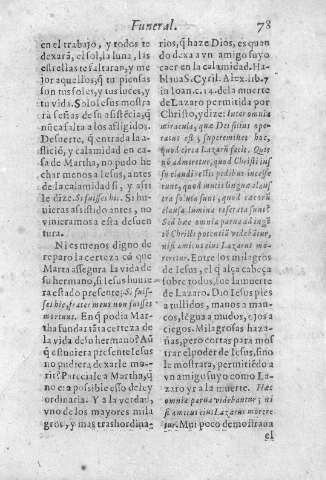 Funeral. 78
en el trabajo, y todos te
dexarà, el sol, la luna, las
estrellas te faltaran, y me
jor aquellos, q̃ tu piensas
son tus soles, y tus luces, y
tu vida. Solo Iesus mostra
ra señas desu assistẽcia, q̃
nũca falta a los afligidos.
Desuerte, q̃ entrada la a-
flició, y calamidad en ca
sa de Martha, no pudo he
char menos a Iesus, antes
de la calamidad si, y assi
le dize. Si fuisses hic. Si hu
uieras assistido antes, no
vinieramos a esta desuen
tura.
Ni es menos digno de
reparo la certeza có que
Marta assegura la vida de
su hermano, si Iesus huuie
ra estado presente; Si fuis-
ses hic, frater meus non fuisset
mortuus. En q̃ podia Mar
tha fundar tãta certeza de
la vida de su hermano? Aũ
q̃ estuuiera presente Iesus
no pudiera dexarle mo-
rir? Pareciale a Martha, q̃
no era possible esso de ley
ordinaria. Y a la verdad,
vno de los mayores mila
gros, y mas trashordina-
rios, q̃ haze Dios, es quan
do dexa a vn amigo suyo
caer en la calamidad. Ha-
blaua S. Cyril. Alex. lib. 7
in Ioan. c. 14. de la muerte
de Lazaro permitida por
Christo, y dize: Inter omnia
miracula, quæ Dei filius ope-
ratus est; supereminet hæc,
quod circa Lazarũ fecit. Quis
nõ admiretur, quod Christi ius
su claudi rectis pedibus incesse
runt, quod mutis lingua clau-
stra soluta sunt, quod cæcorũ
clausa lumina reserata sunt?
Sed hæc omnia parua ad inge
tẽ Christi potentiã videbãtur,
nisi amicus eius Lazarus mo-
reretur. Entre los milagros
de Iesus, el q̃ alça cabeça
sobre todos, fue la muerte
de Lazaro. Dio Iesus pies
a tullidos, manos a man-
cos, lẽgua a mudos, ojos a
ciegos. Milagrosas haza-
ñas, pero cortas para mos
trar el poder de Iesus, sino
le mostrara, permitiẽdo a
vn amigo suyo como La-
zaro yr a la muerte. Hæc
omnia parua videbantur; ni
si amicus eius Lazarus morere
tur. Mui poco demostraua
el